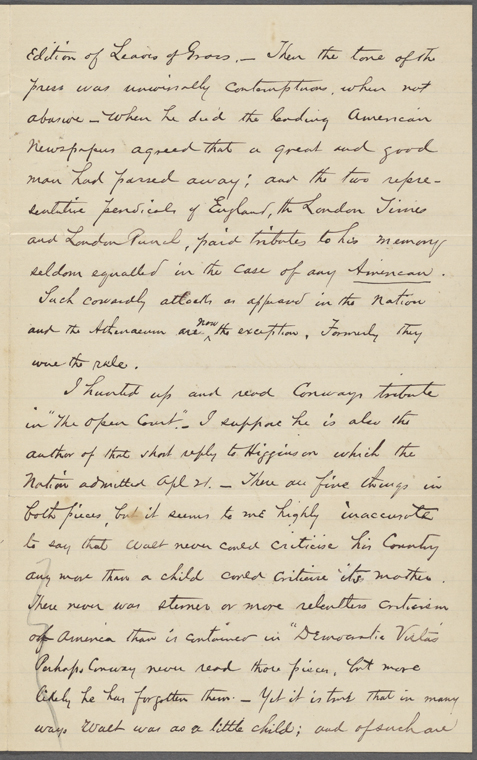 Edition of Leaves of Grass. — Then the tone of the
press was universally contemptuous, when not
abusive — When he died the leading American
Newspapers agreed that a great and good
man had passed away; and the two repre-
sentative periodicals of England, the London Times
and London Punch, paid tributes to his memory
seldom equalled in the case of any American.
Such cowardly attacks as appeared in the Nation
and the Athenaeum are now the exception. Formerly they
were the rule.
I hunted up and read Conways tribute
in "The Open Court". — I suppose he is also the
author of that short reply to Higginson which the
Nation admitted Apl 21. — There are fine things in
both pieces, but it seems to me highly inaccurate
to say that Walt never could criticise his Country
any more than a child could criticise its mother.
There never was sterner or more relentless criticism
of America than is contained in "Democratic Vistas
Perhaps Conway never read those pieces, but more
likely he has forgotten them. — Yet it is true that in many
ways Walt was as a little child; and of such are